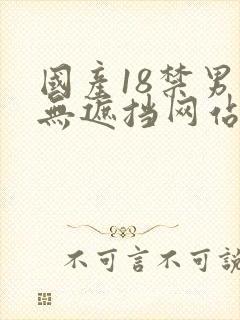 國產18禁男
無遮挡网佔
不可言不可說